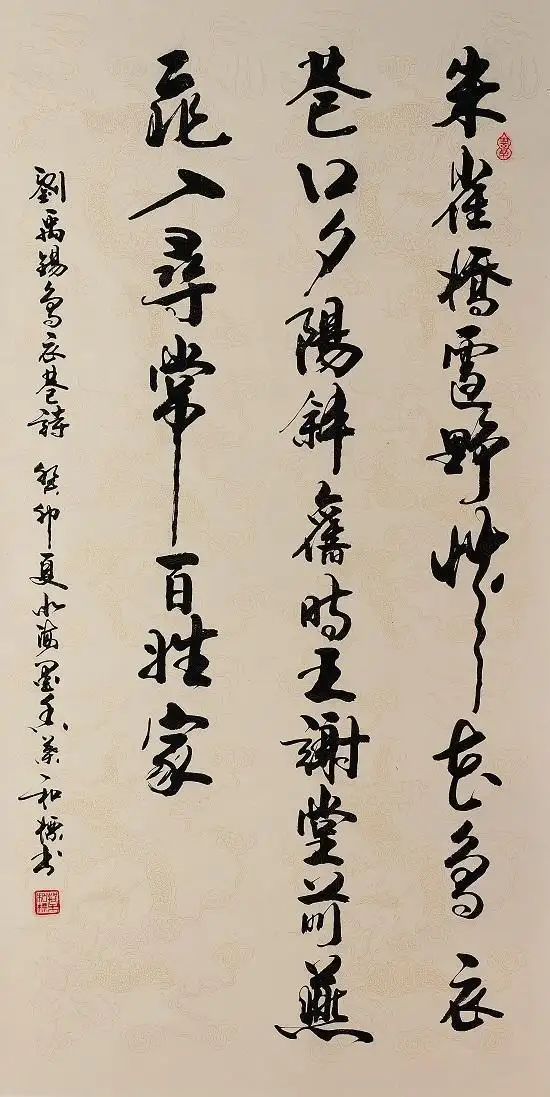 朱雀橋邊野草花烏衣
巷口夕陽斜舊時王謝堂前燕
飛入尋常百姓家
劉禹錫烏衣巷詩 癸卯夏北海墨香葉和標書